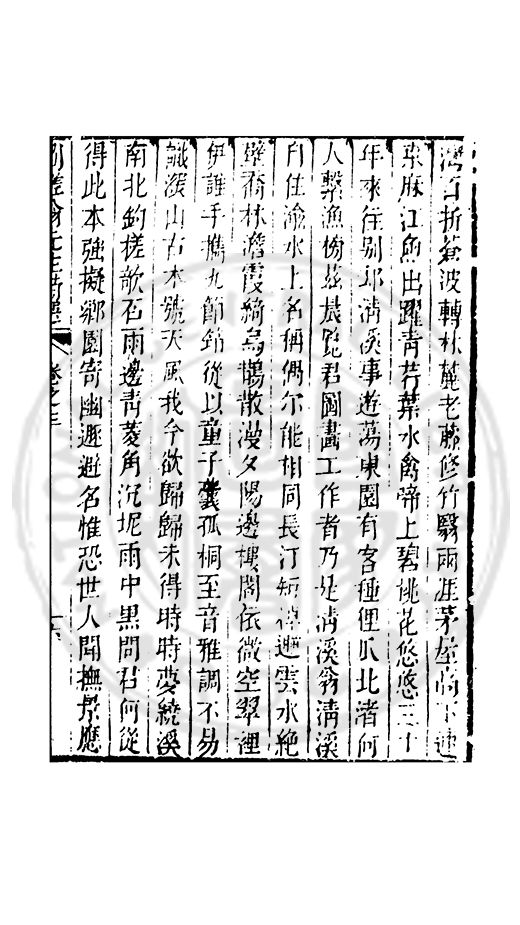 灣石折蒼波轉林麓老藤修竹翳兩涯茅屋高下連
桑麻江魚出躍青荇葉水禽啼上碧桃花悠悠三十
年來往别邱清溪事遊蕩東園有客種俚瓜北渚何
人繫漁榜茲晨覽君圖畫工作者乃是清溪翁清溪
自住渝水上名稱偶尔能相同長汀短渚迥雲水絶
壁喬林澹霞綺烏榜散漫夕陽邊樓閣依微空翠裡
伊誰手擕九節筇從以童子囊孤桐至音雅調不易
識深山古木號天風我今欲歸歸未得時時夢繞溪
南北釣槎欹石雨邊青菱角沉坭雨中黒問君何從
得此本強擬鄉園寄幽遯避名惟恐世人聞撫景應
卷之三